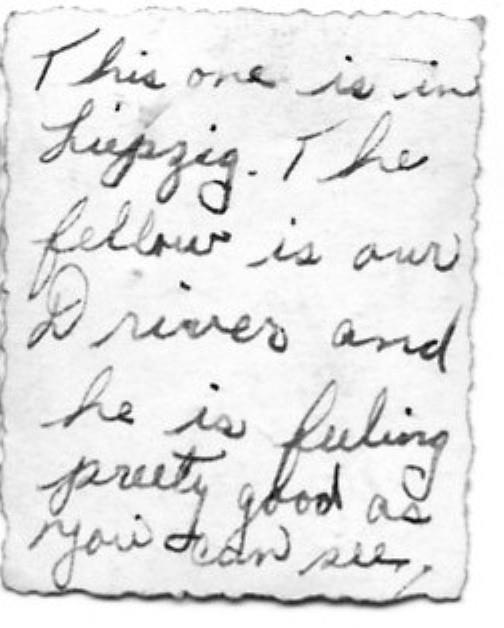 This one is in
Liepzig. The
fellow is our
Driver and
he is feeling
preety good as
you can see.